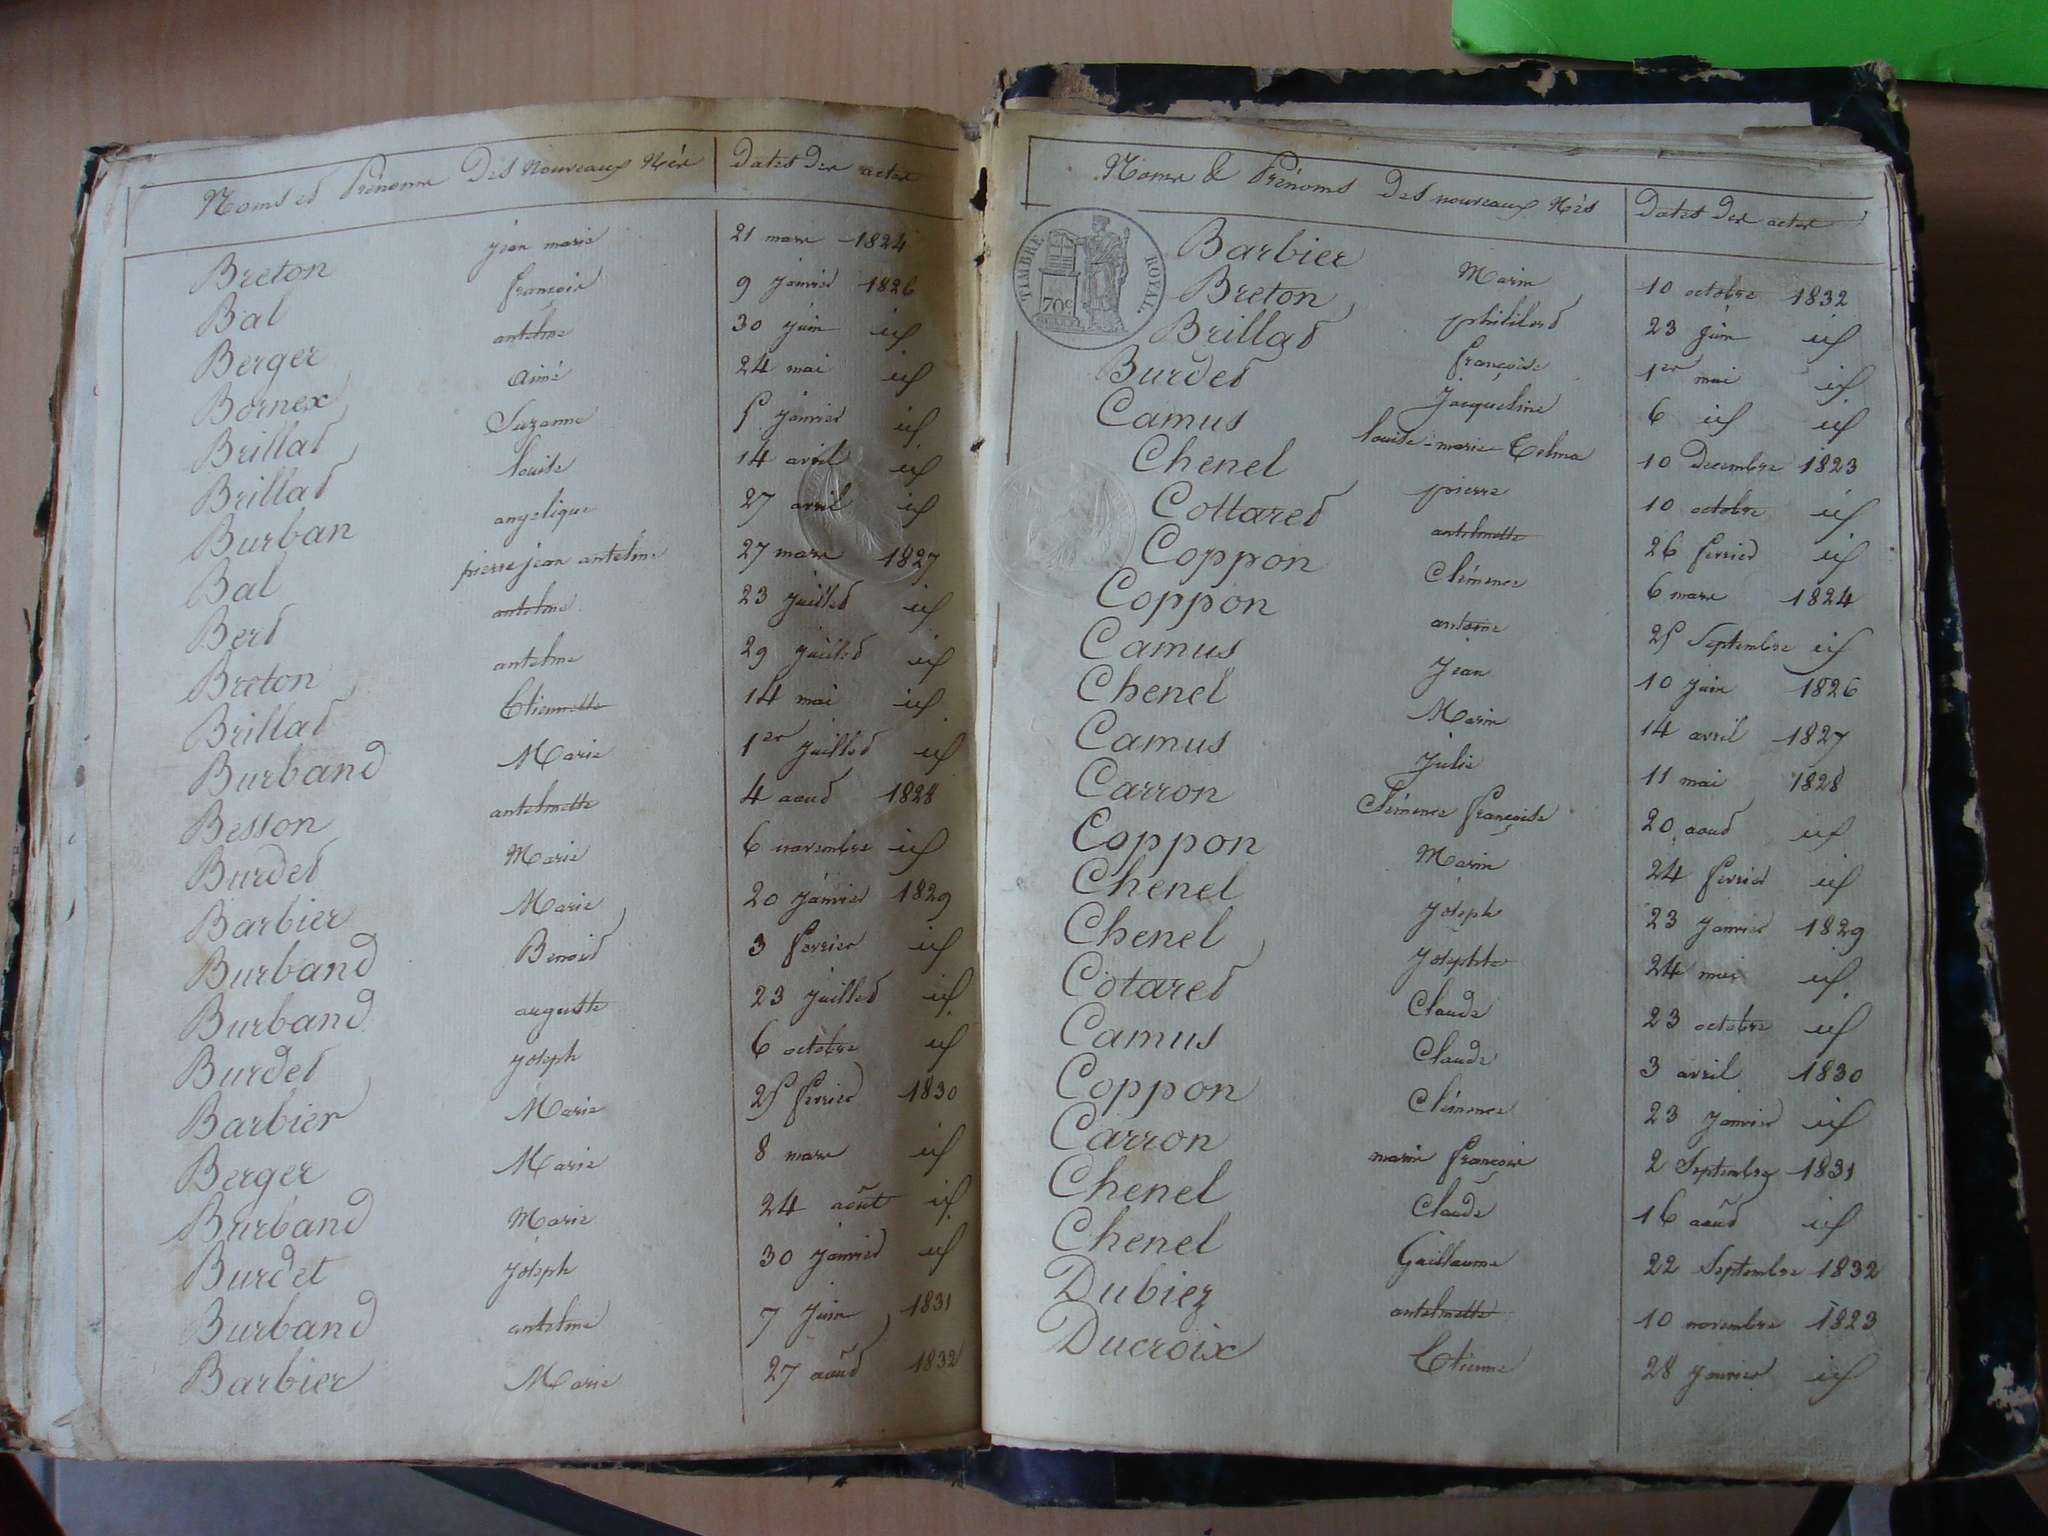 Noms et Prénoms Des Nouveaux Nés Dates Des actes
Breton jean marie 21 mars 1824
Bal françois 9 janvier 1826
Berger antelme 30 juin id
Bornex Aimé 24 mai id
Brillat Suzanne 5 janvier id
Brillat louise 14 avril id
Burban angelique 27 avril id
Bal pierre jean antelme 27 mars 1827
Bert antelme 23 juillet id
Breton antelme 29 juillet id
Brillat Etiennette 14 mai id
Burband Marie 1er juillet id
Besson antelmette 4 aout 1828
Burdet Marie 6 novembre id
Barbier Marie 20 janvier 1829
Burband Benoit 3 fevrier id
Burband auguste 23 juillet id
Burdet joseph 6 octobre id
Barbier Marie 25 fevrier 1830
Berger Marie 8 mars id
Burband Marie 24 août id
Burdet joseph 30 janvier id
Burband antelme 7 juin 1831
Barbier Marie 27 août 1832
Noms & Prénoms Des nouveaux Nés Dates Des actes
TIMBRE ROYAL
70c
Barbier Marin 10 octobre 1832
Breton philibert 23 juin id
Brillat françoise 1er mai id
Burdet Jacqueline 6 id id
Camus louise-marie-Telma 10 decembre 1823
Chenel pierre 10 octobre id
Cottaret antelmette 26 fevrier id
Coppon Clémence 6 mars 1824
Coppon antoine 25 Septembre id
Camus Jean 10 juin 1826
Chenel Marin 14 avril 1827
Camus julie 11 mai 1828
Carron Clémence françoise 20 aout id
Coppon Marin 24 fevrier id
Chenel joseph 23 janvier 1829
Chenel josephte 24 mai id
Cotaret Claude 23 octobre id
Camus Claude 3 avril 1830
Coppon Clémence 23 janvier id
Carron marie françoise 2 Septembre 1831
Chenel Claude 16 août id
Chenel Guillaume 22 Septembre 1832
Dubiez antelmette 10 novembre 1823
Ducroix Etienne 28 janvier id